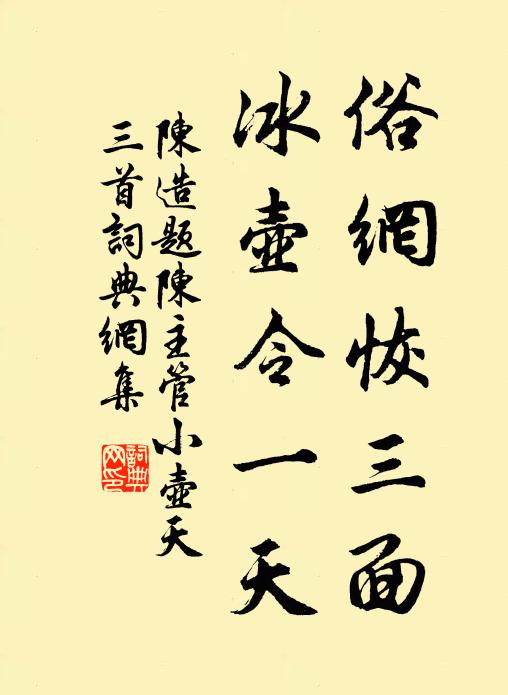 俗網恢三面
冰壺令一天
陳造題陳主管小壺天
三首詞典網集
詞典
网印